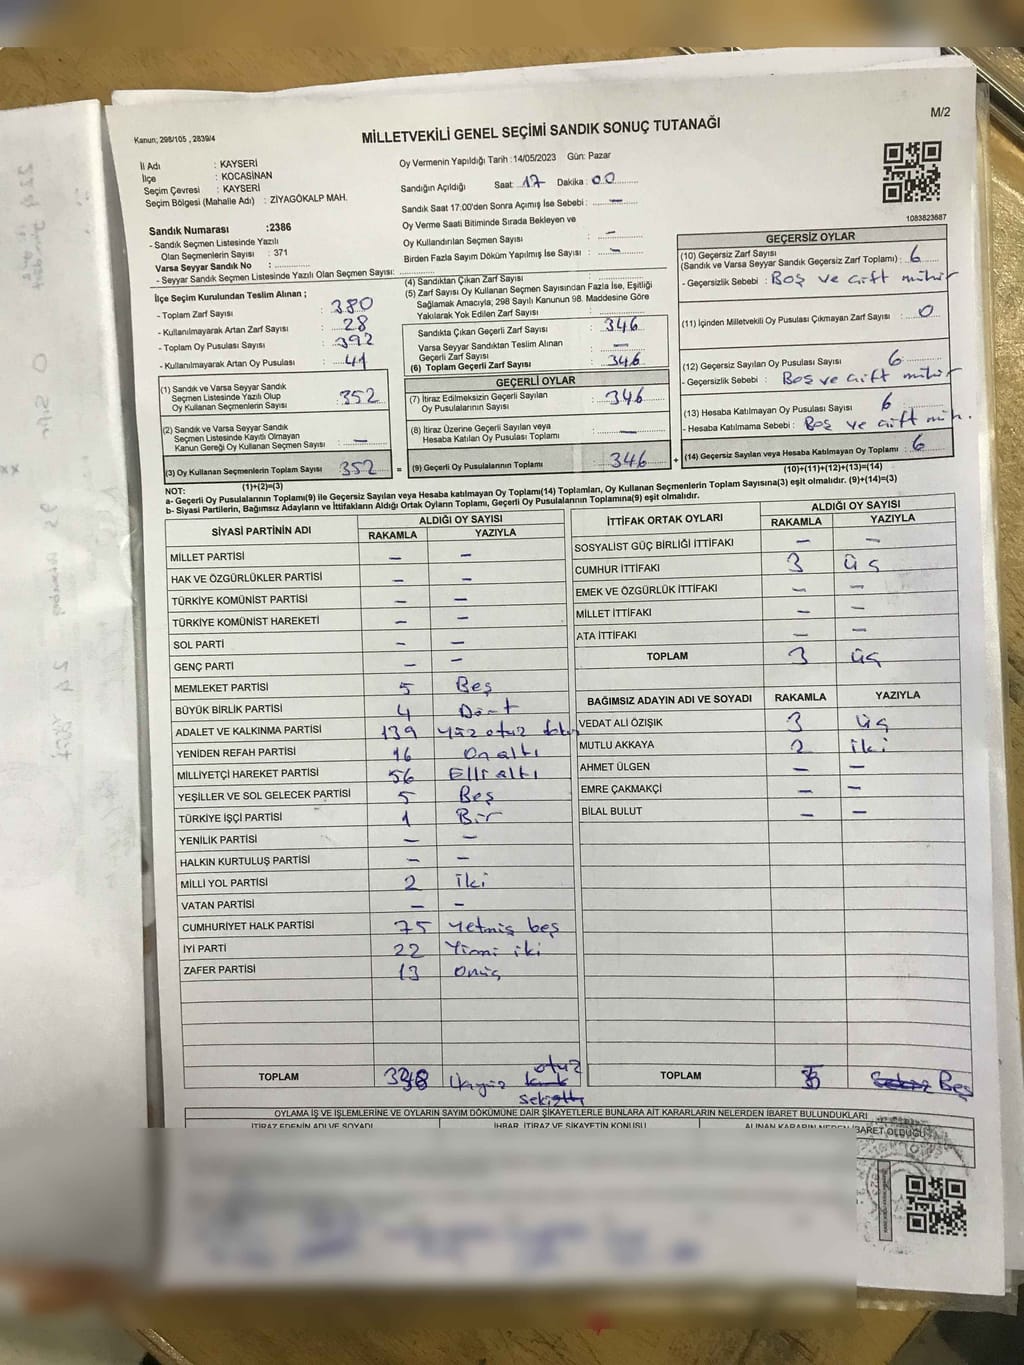 M/2
Kanun; 298/105 , 2839/4
MİLLETVEKİLİ GENEL SEÇİMİ SANDIK SONUÇ TUTANAĞI
İl Adı : KAYSERİ
İlçe : KOCASİNAN
Seçim Çevresi : KAYSERİ
Seçim Bölgesi (Mahalle Adı) : ZİYAGÖKALP MAH.
Sandık Numarası :2386
- Sandık Seçmen Listesinde Yazılı
Olan Seçmenlerin Sayısı : 371
Varsa Seyyar Sandık No :
- Seyyar Sandık Seçmen Listesinde Yazılı Olan Seçmen Sayısı:
Oy Vermenin Yapıldığı Tarih :14/05/2023 Gün: Pazar
Sandığın Açıldığı Saat: 17 Dakika : 00
Sandık Saat 17:00'den Sonra Açımış İse Sebebi : —
Oy Verme Saati Bitiminde Sırada Bekleyen ve
Oy Kullandırılan Seçmen Sayısı : —
Birden Fazla Sayım Döküm Yapılmış İse Sayısı : —
1083823687
İlçe Seçim Kurulundan Teslim Alınan ;
- Toplam Zarf Sayısı : 380
- Kullanılmayarak Artan Zarf Sayısı : 28
- Toplam Oy Pusulası Sayısı : 392
- Kullanılmayarak Artan Oy Pusulası : 41
(1) Sandık ve Varsa Seyyar Sandık
Seçmen Listesinde Yazılı Olup
Oy Kullanan Seçmenlerin Sayısı : 352
(2) Sandık ve Varsa Seyyar Sandık
Seçmen Listesinde Kayıtlı Olmayan
Kanun Gereği Oy Kullanan Seçmen Sayısı : —
(3) Oy Kullanan Seçmenlerin Toplam Sayısı 352 =
(1)+(2)=(3)
(4) Sandıktan Çıkan Zarf Sayısı :
(5) Zarf Sayısı Oy Kullanan Seçmen Sayısından Fazla İse, Eşitliği
Sağlamak Amacıyla; 298 Sayılı Kanunun 98. Maddesine Göre
Yakılarak Yok Edilen Zarf Sayısı :
Sandıkta Çıkan Geçerli Zarf Sayısı : 346
Varsa Seyyar Sandıktan Teslim Alınan
Geçerli Zarf Sayısı : —
(6) Toplam Geçerli Zarf Sayısı : 346
GEÇERLİ OYLAR
(7) İtiraz Edilmeksizin Geçerli Sayılan
Oy Pusulalarının Sayısı : 346
(8) İtiraz Üzerine Geçerli Sayılan veya
Hesaba Katılan Oy Pusulası Toplamı : —
(9) Geçerli Oy Pusulalarının Toplamı : 346 +
GEÇERSİZ OYLAR
(10) Geçersiz Zarf Sayısı
(Sandık ve Varsa Seyyar Sandık Geçersiz Zarf Toplamı) : 6
- Geçersizlik Sebebi : Boş ve çift mühür
(11) İçinden Milletvekili Oy Pusulası Çıkmayan Zarf Sayısı : 0
(12) Geçersiz Sayılan Oy Pusulası Sayısı : 6
- Geçersizlik Sebebi : Boş ve çift mühür
(13) Hesaba Katılmayan Oy Pusulası Sayısı : 6
- Hesaba Katılmama Sebebi : Boş ve çift müh.
(14) Geçersiz Sayılan veya Hesaba Katılmayan Oy Toplamı : 6
(10)+(11)+(12)+(13)=(14)
NOT:
a- Geçerli Oy Pusulalarının Toplamı(9) ile Geçersiz Sayılan veya Hesaba katılmayan Oy Toplamı(14) Toplamları, Oy Kullanan Seçmenlerin Toplam Sayısına(3) eşit olmalıdır. (9)+(14)=(3)
b- Siyasi Partilerin, Bağımsız Adayların ve İttifakların Aldığı Ortak Oyların Toplamı, Geçerli Oy Pusulalarının Toplamına(9) eşit olmalıdır.
SİYASİ PARTİNİN ADI ALDIĞI OY SAYISI
RAKAMLA YAZIYLA
MİLLET PARTİSİ — —
HAK VE ÖZGÜRLÜKLER PARTİSİ — —
TÜRKİYE KOMÜNİST PARTİSİ — —
TÜRKİYE KOMÜNİST HAREKETİ — —
SOL PARTİ — —
GENÇ PARTİ — —
MEMLEKET PARTİSİ 5 Beş
BÜYÜK BİRLİK PARTİSİ 4 Dört
ADALET VE KALKINMA PARTİSİ 139 Yüz otuz dokuz
YENİDEN REFAH PARTİSİ 16 On altı
MİLLİYETÇİ HAREKET PARTİSİ 56 Elli altı
YEŞİLLER VE SOL GELECEK PARTİSİ 5 Beş
TÜRKİYE İŞÇİ PARTİSİ 1 Bir
YENİLİK PARTİSİ — —
HALKIN KURTULUŞ PARTİSİ — —
MİLLİ YOL PARTİSİ 2 iki
VATAN PARTİSİ — —
CUMHURİYET HALK PARTİSİ 75 Yetmiş beş
İYİ PARTİ 22 Yirmi iki
ZAFER PARTİSİ 13 Onüç
TOPLAM
otuz
sekiz
İTTİFAK ORTAK OYLARI ALDIĞI OY SAYISI
RAKAMLA YAZIYLA
SOSYALİST GÜÇ BİRLİĞİ İTTİFAKI — —
CUMHUR İTTİFAKI 3 üç
EMEK VE ÖZGÜRLÜK İTTİFAKI — —
MİLLET İTTİFAKI — —
ATA İTTİFAKI — —
TOPLAM 3 üç
BAĞIMSIZ ADAYIN ADI VE SOYADI RAKAMLA YAZIYLA
VEDAT ALİ ÖZIŞIK 3 üç
MUTLU AKKAYA 2 iki
AHMET ÜLGEN — —
EMRE ÇAKMAKÇİ — —
BİLAL BULUT — —
TOPLAM 5 Beş
OYLAMA İŞ VE İŞLEMLERİNE VE OYLARIN SAYIM DÖKÜMÜNE DAİR ŞİKAYETLERLE BUNLARA AİT KARARLARIN NELERDEN İBARET BULUNDUKLARI
İTİRAZ EDENİN ADI VE SOYADI İHBAR, İTİRAZ VE ŞİKAYETİN KONUSU ALINAN KARARIN NEDEN İBARET OLDUĞU